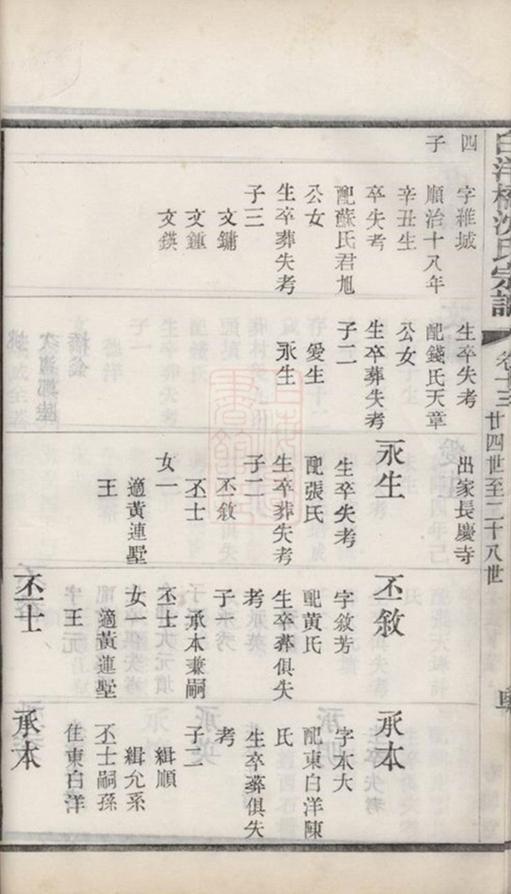 白洋橋沈氏宗譜
卷十三
廿四世至二十八世
四
子
字維城
順治十八年
辛丑生
卒失考
配蘇氏君旭
公女
生卒葬失考
子三
文鏞
文鍾
文鍈
生卒失考
配錢氏天章
公女
生卒葬失考
子二
愛生
永生
出家長慶寺
永生
生卒失考
配張氏
生卒葬失考
子二
丕敘
丕士
女一
適黃連墅
王
丕敘
字敘芳
配黃氏
生卒葬俱失
考
子一
承本兼嗣
丕士
女一
適黃連墅
王
丕士
承本
字本大
配東白洋陳
氏
生卒葬俱失
考
子二
緝順
緝允系
丕士嗣孫
住東白洋